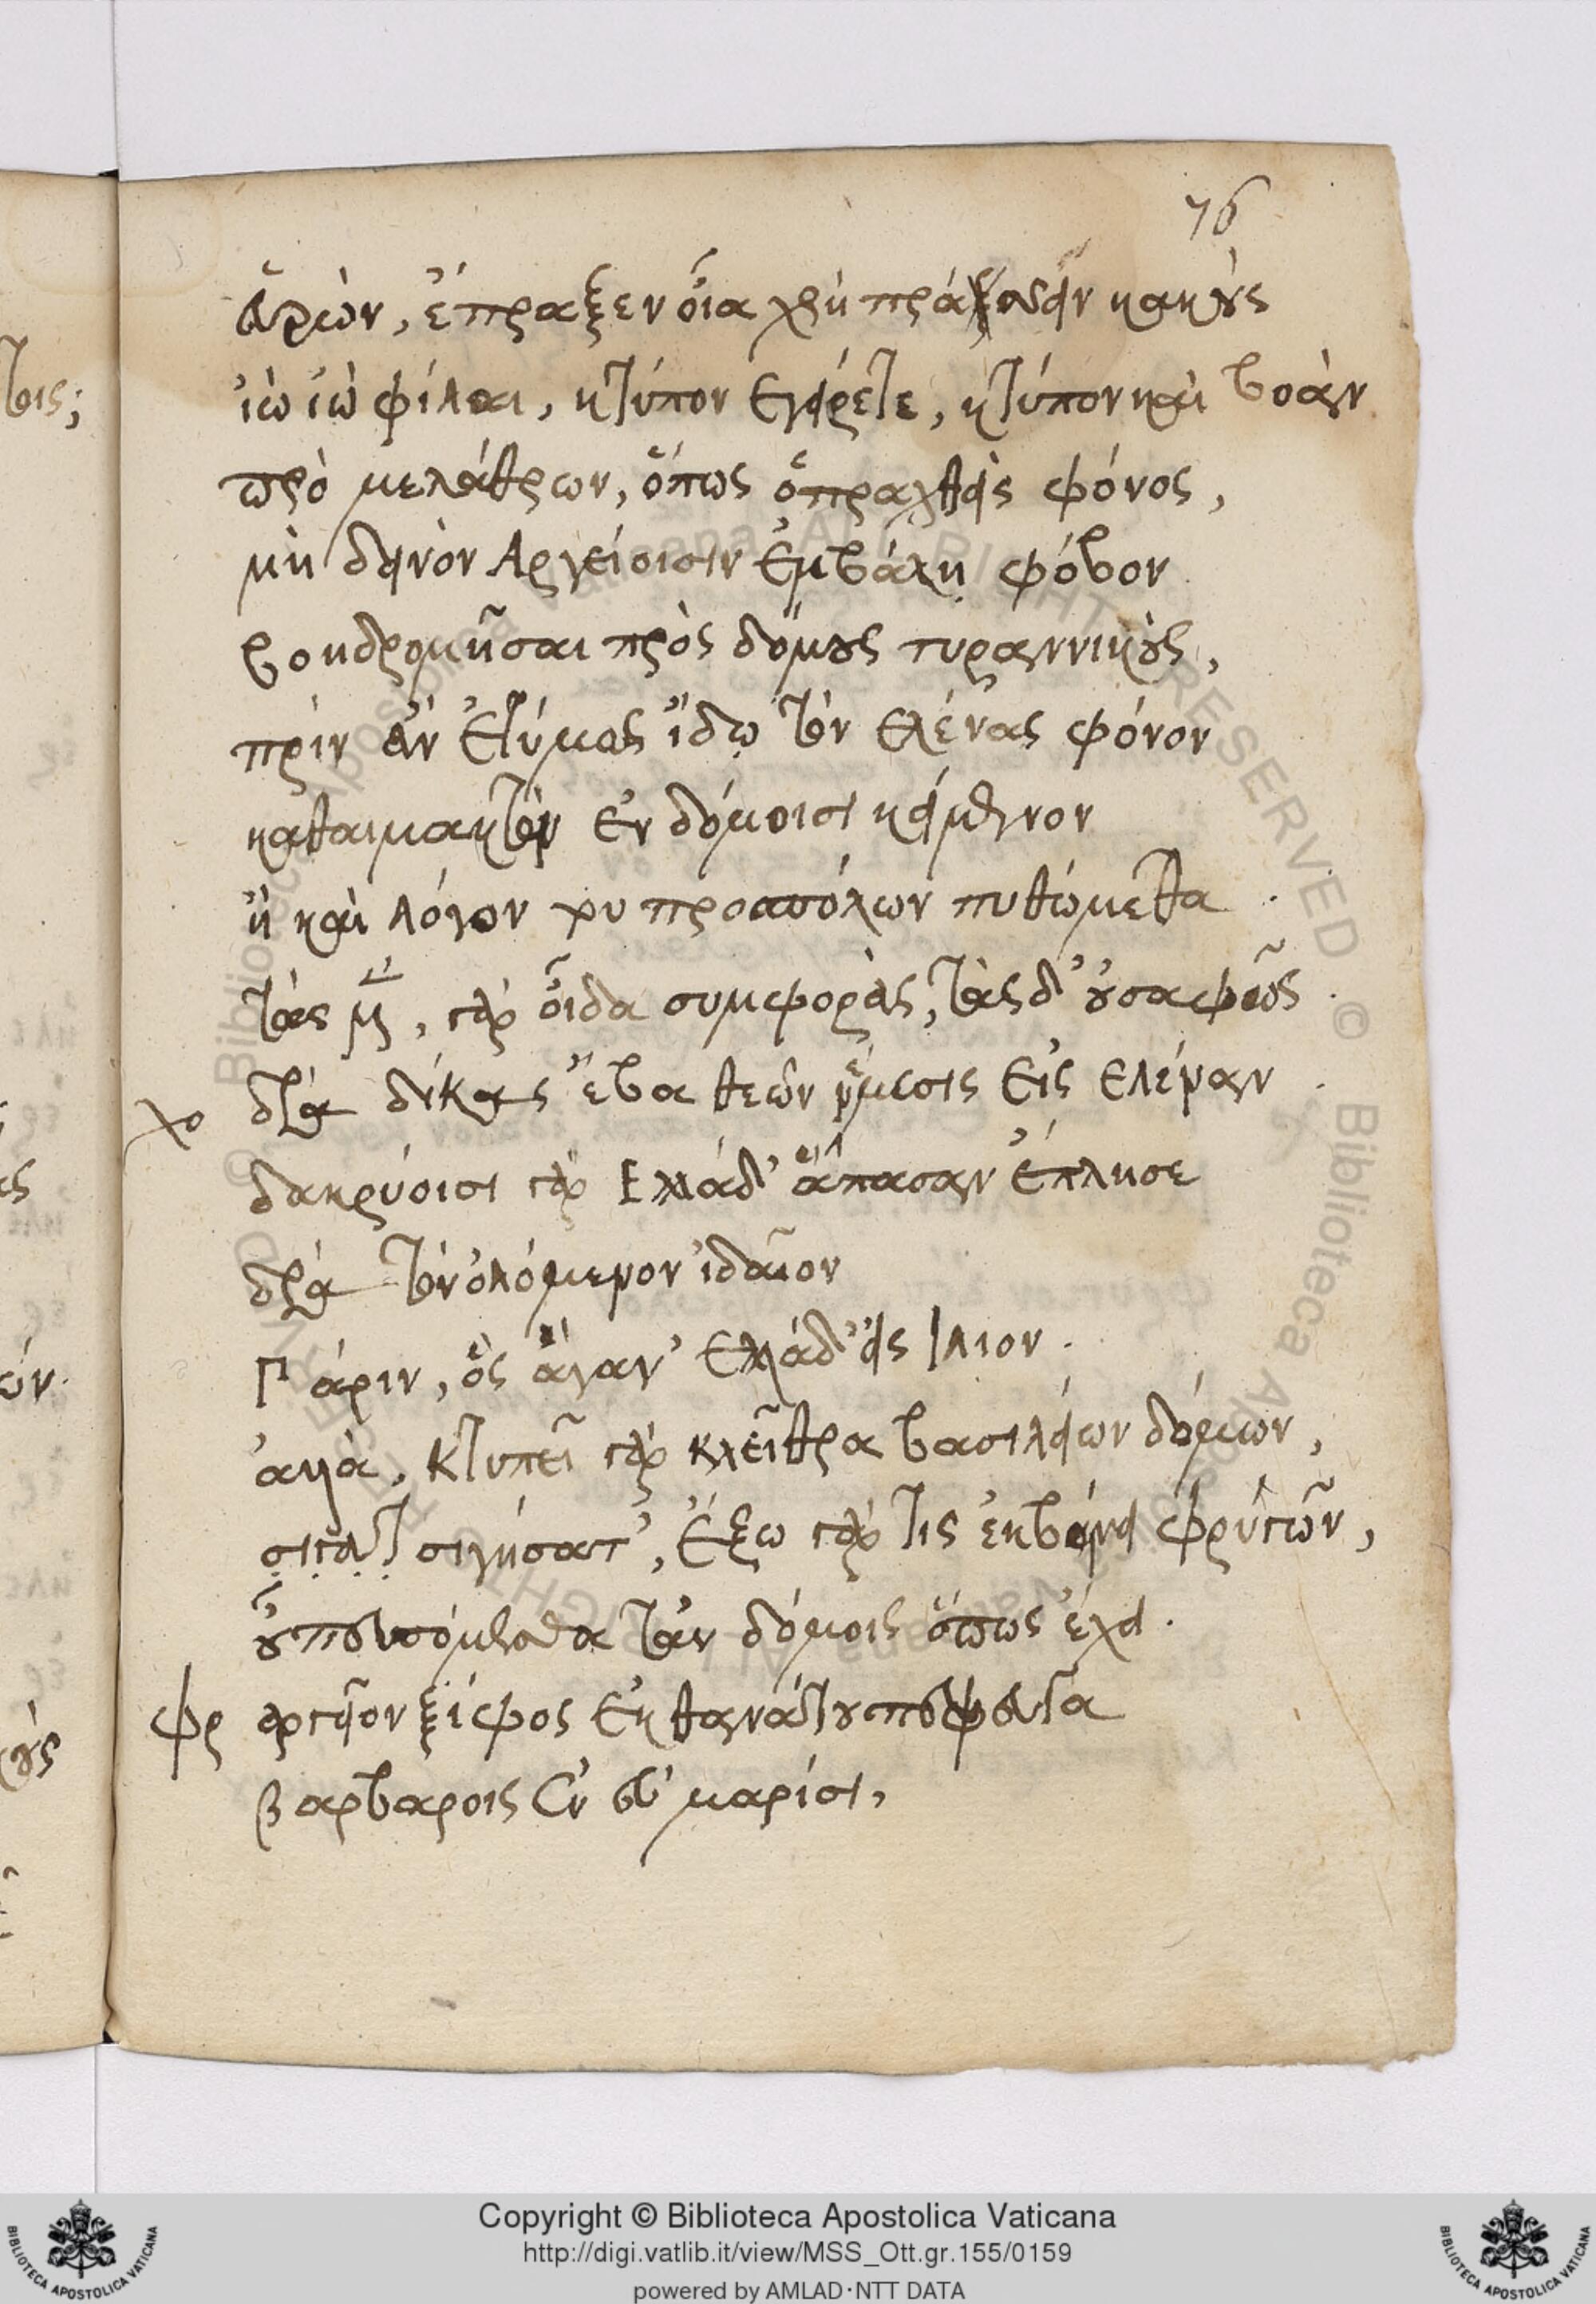 76
εὑρὼν, ἔπραξεν οἷα χρὴ πράσσειν κακοὺς
ἰὼ ἰὼ φίλαι, κτύπον ἐγείρετε, κτύπον καὶ βοὰν
πρὸ μελάθρων, ὅπως ὁ πραχθεὶς φόνος,
μὴ δεινὸν Ἀργείοισιν ἐμβάλῃ φόβον
βοηδρομῆσαι πρὸς δόμους τυραννικοὺς,
πρὶν ἂν ἐτύμως ἴδω τὸν ἑλένας φόνον
καθαιμακτὸν ἐν δόμοισι κείμενον
ἢ καὶ λόγον του προσπόλων πυθώμεθα .
τὰς μὲν, γὰρ οἶδα συμφορὰς, τὰς δ' οὐ σαφῶς .
χο διὰ δίκας ἔβα θεῶν νέμεσις εἰς ἑλέναν .
δακρύοισι γὰρ Ἑλλάδ' ἅπασαν ἔπλησε
διὰ τὸν ὀλόμενον ἰδαῖον
Πάριν, ὃς ἄγαγ' Ἑλλάδ' εἰς Ἴλιον .
ἀλλὰ, κτυπεῖ γὰρ κλεῖθρα βασιλείων δόμων,
σιγᾶτε σιγήσατ', ἔξω γάρ τις ἐκβαίνει φρυγῶν,
οὗ πευσόμεσθα τἀν δόμοις ὅπως ἔχει .
φρ ἀργεῖον ξίφος ἐκ θανάτου πέφευγα
βαρβάροις ἐν εὐμαρίσι,
Copyright © Biblioteca Apostolica Vaticana
http://digi.vatlib.it/view/MSS_Ott.gr.155/0159
powered by AMLAD·NTT DATA